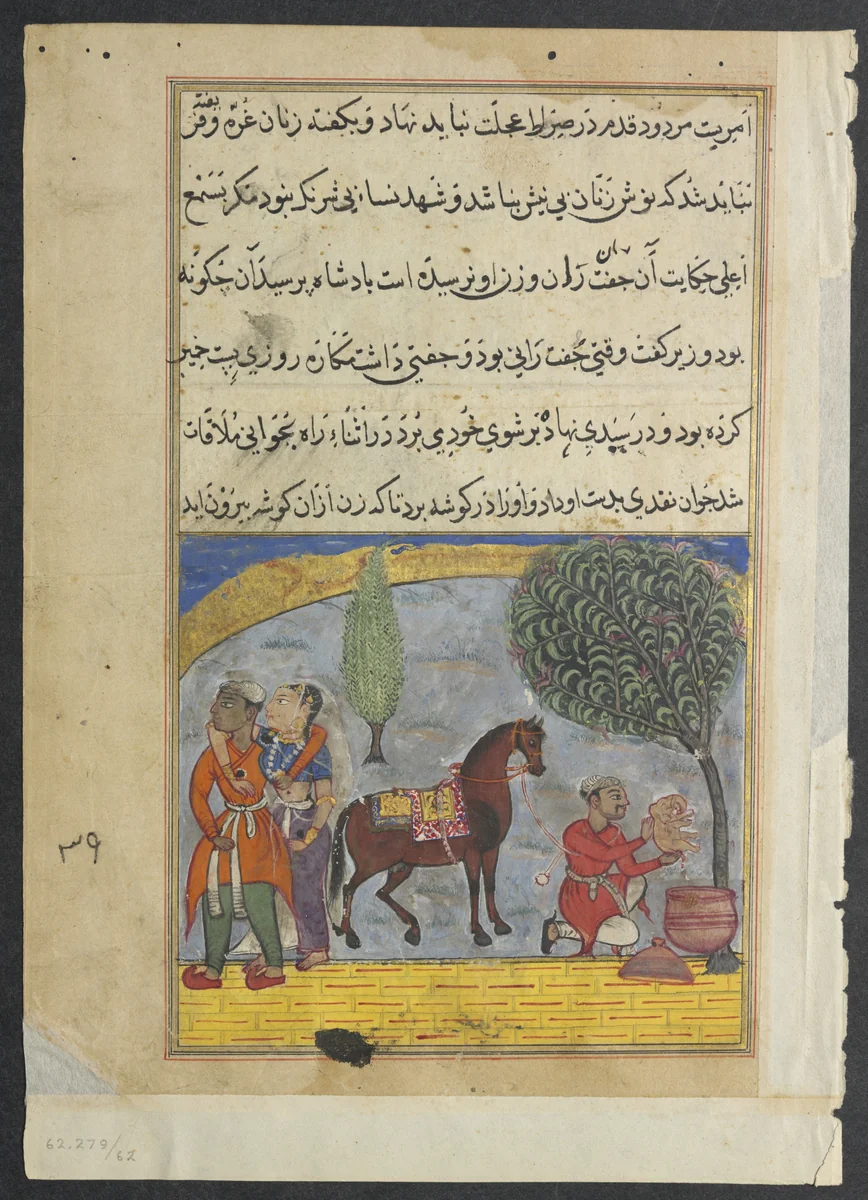 امریت مردود قدم در صراط عجلت نباید نهاد و بکفته زنان غره و
نباید شد که نوش زنان بی نیش نباشد و شهد نساء بی شرنک نبود مکر بسمع
اعلی حکایت آن جفت ران و زن او نرسیده است بادشاه پرسید آن چکونه
بود وزیر کفت وقتی جفت رانی بود و جفتی داشت مکاره روزی
کرده بود و در سپدی نهاده بر شوی خودی برد در اثناء راه بجوانی ملاقات
شد جوان نقدی بدست او داد و او را در کوشه برد تا که زن از ان کوشه بیرون اید
۳۹
62.279/62